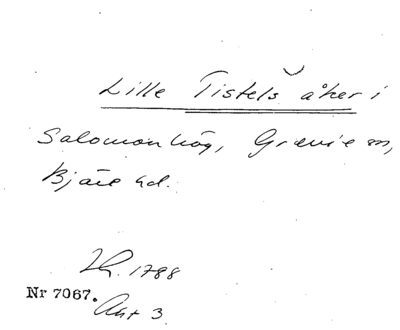 Lille Tistels åker i
Salomonhög, Grevie sn,
Bjäre hd.
Lh. 1788
Nr 7067.
Akt 3